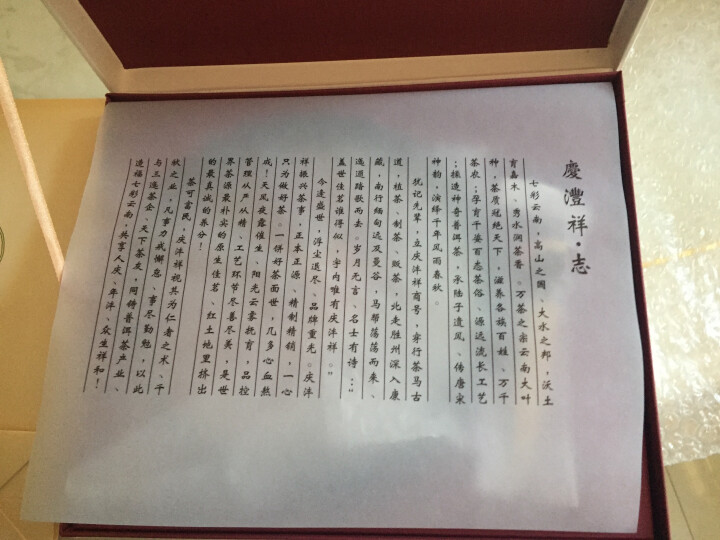 慶灃祥·志
七彩云南，高山之国、大水之邦，沃土
育嘉木、秀水润茶香。万茶之宗云南大叶
种，茶质冠绝天下，滋养各族百姓、万千
茶农；孕育千姿百态茶俗、源远流长工艺
；操造神奇普洱茶，承陆子遗风、传唐宋
神韵，演绎千年风雨春秋。
犹记先辈，立庆沣祥商号，穿行茶马古
道，植茶、制茶、贩茶，北走胜州深入康
藏，南行缅甸远及曼谷，马帮荡荡而来、
逶迤踏歌而去。岁月无言、名士有诗：“
盖世佳茗谁得似，宇内唯有庆沣祥。”
今逢盛世，浮尘退尽、品牌重光。庆沣
祥振兴茶事，正本正源、精制精销，一心
只为做好茶。一饼好茶面世，几多心血熬
成！天风夜露催生、阳光云雾抚育，品控
管理从严从精、工艺环节尽善尽美，是世
界茶源最朴实的原生佳茗、红土地里挤出
的最真诚的养分！
茶可富民，庆沣祥视其为仁者之术、千
秋之业，凡事力戒懈怠、事尽勤勉，以此
与三迤茶企、天下茶友，同铸普洱茶产业、
造福七彩云南，共享人庆、年沣、众生祥和！